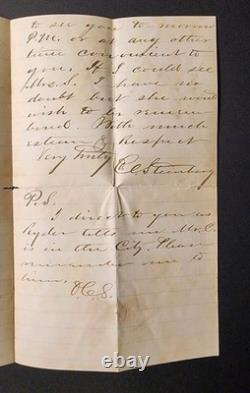 to see you to morrow
P.M. or at any other
time convenient to
you. If I could see
Mrs. S. I have no
doubt but she would
wish to be remem
bered. With much
esteem & Respect
Very Truly
P.S.
I direct to you as
Ryder tells me Mr. C.
is in the City. Please
remember me to
him.